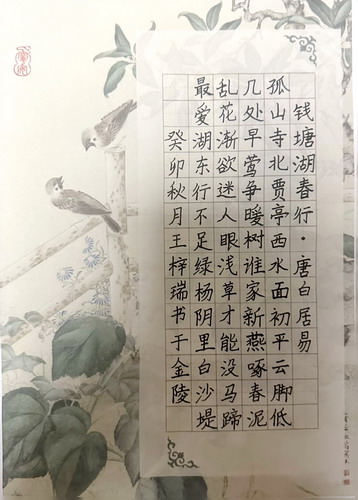 钱塘湖春行·唐白居易
孤山寺北贾亭西水面初平云脚低
几处早莺争暖树谁家新燕啄春泥
乱花渐欲迷人眼浅草才能没马蹄
最爱湖东行不足绿杨阴里白沙堤
癸卯秋月王梓瑞书于金陵